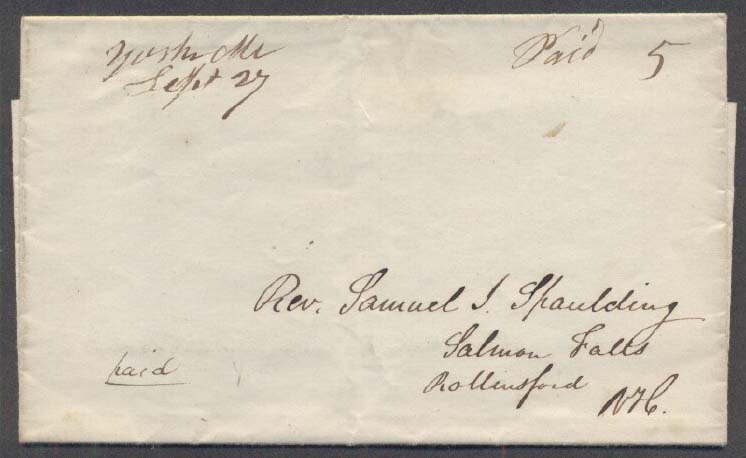 York Me
Sept 27
Paid 5
Rev. Samuel J. Spaulding
Salmon Falls
Rollinsford
N.H.
paid